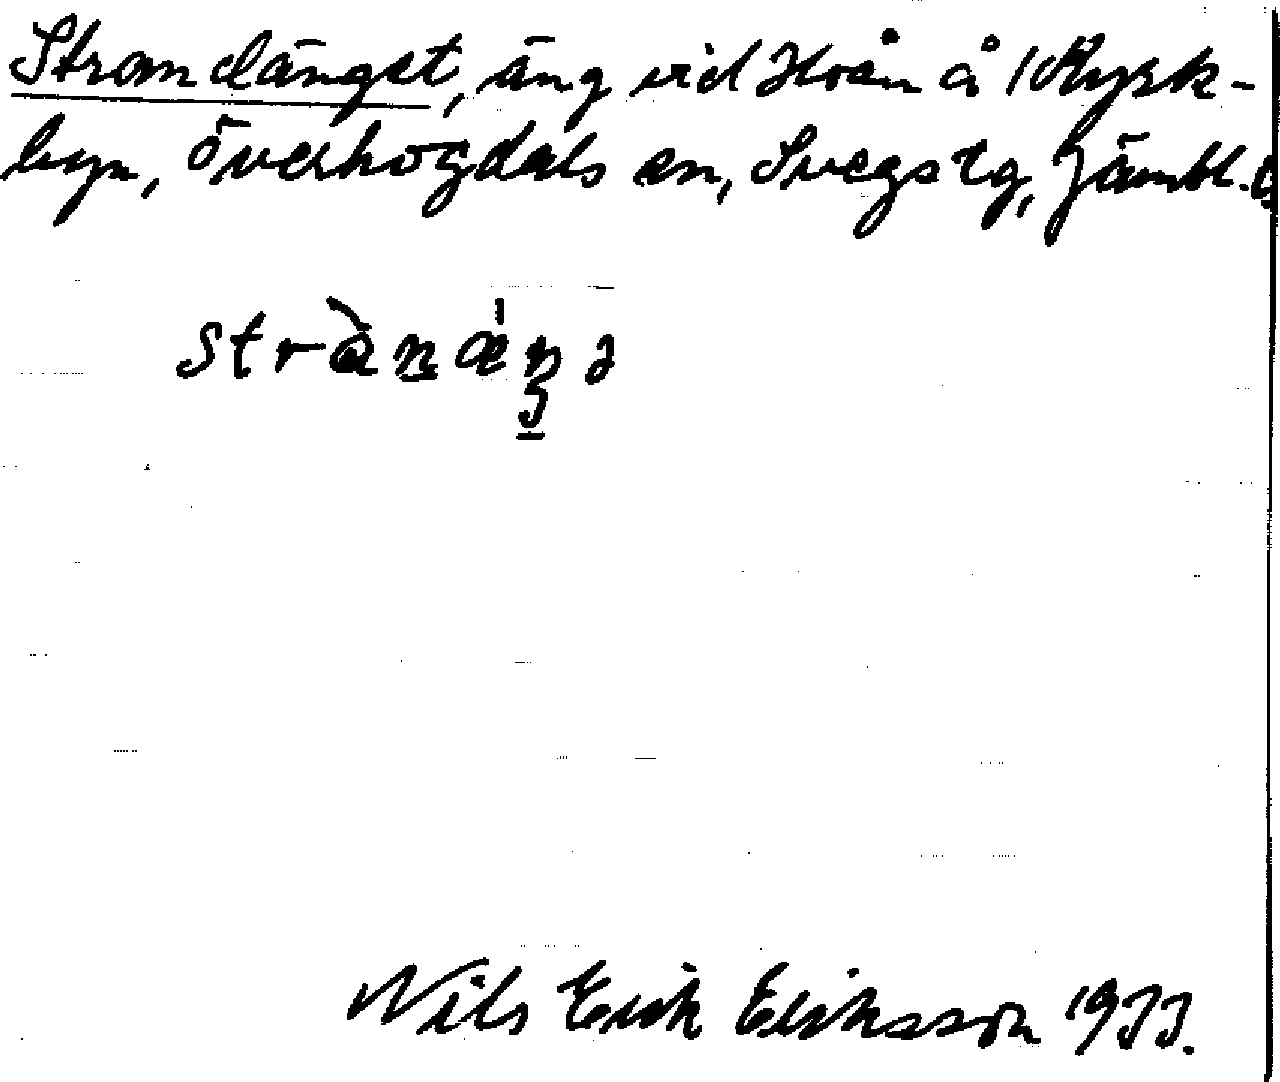 Strandängst, äng vid Hoån å i Kyrk-
byn, Överhogdals sn, Svegs tg, Jämtl.
Nils Erik Eriksson 1933.